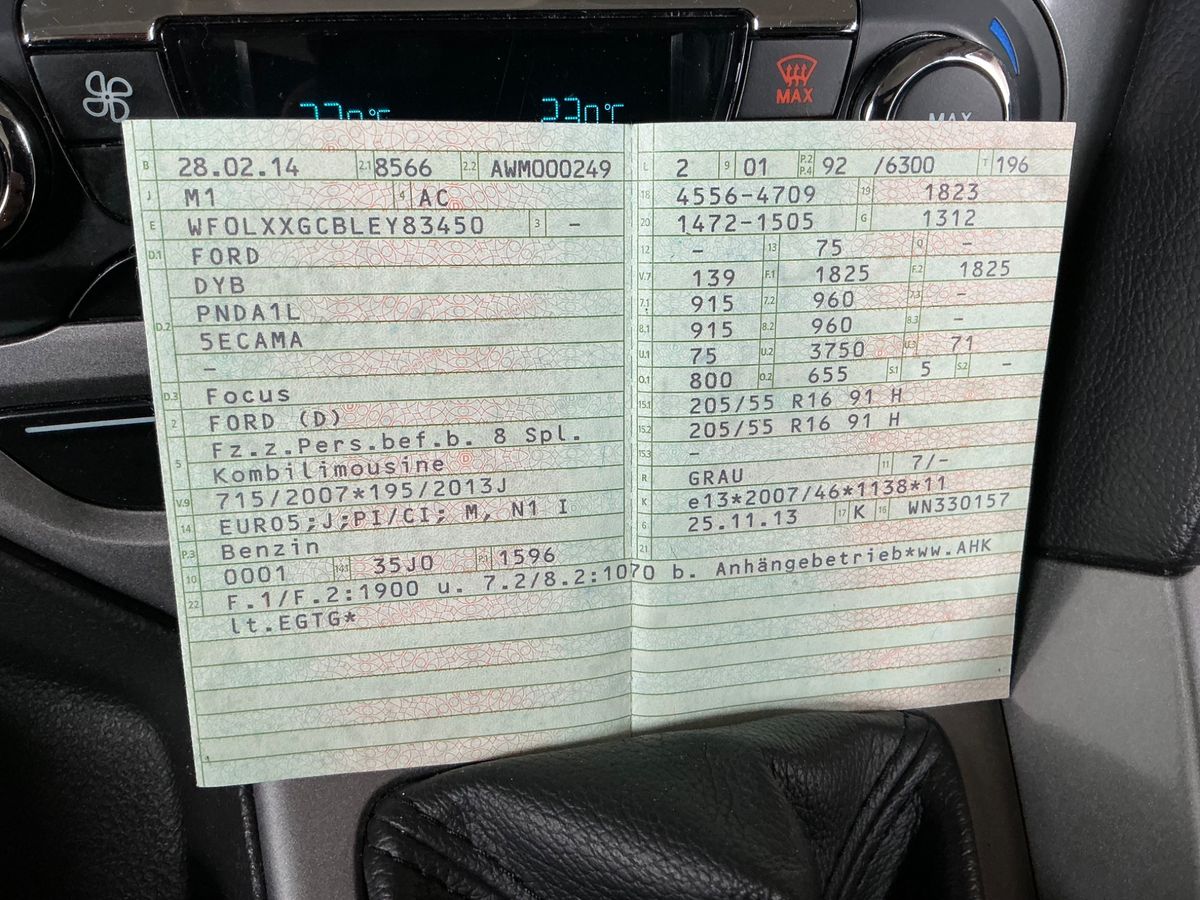 MAX
23.0°C
MAX
B 28.02.14 2.1 8566 2.2 AWM000249
J M1 4 AC
E WF0LXXGCBLEY83450 3 –
D.1 FORD
DYB
D.2 PNDA1L
5ECAMA
–
D.3 Focus
2 FORD (D)
Fz.z.Pers.bef.b. 8 Spl.
5 Kombilimousine
V.9 715/2007*195/2013J
14 EURO5;J;PI/CI; M, N1 I
P.3 Benzin
10 0001 14.1 35J0 P.1 1596
22 F.1/F.2:1900 u. 7.2/8.2:1070 b. Anhängebetrieb*ww.AHK
lt.EGTG*
L 2 9 01 P.2 P.4 92 /6300 T 196
18 4556-4709 19 1823
20 1472-1505 G 1312
12 – 13 75 Q –
V.7 139 F.1 1825 F.2 1825
7.1 915 7.2 960 7.3 –
8.1 915 8.2 960 8.3 –
U.1 75 U.2 3750 U.3 71
O.1 800 O.2 655 S.1 5 S.2 –
15.1 205/55 R16 91 H
15.2 205/55 R16 91 H
15.3 –
R GRAU 11 7/–
K e13*2007/46*1138*11
6 25.11.13 17 K 16 WN330157
21